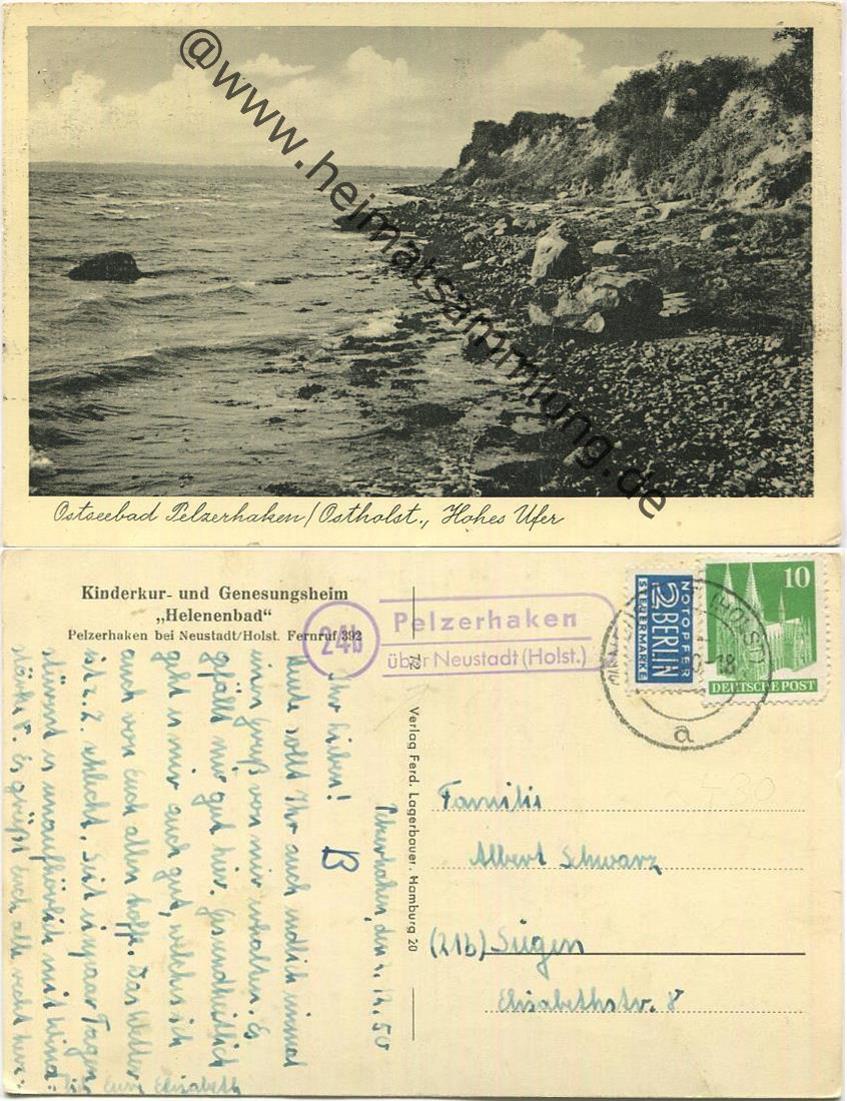 @www.heimatsammlung.de
Ostseebad Pelzerhaken/Ostholst., Hohes Ufer
Kinderkur- und Genesungsheim
„Helenenbad“
Pelzerhaken bei Neustadt/Holst. Fernruf 392
24b
Pelzerhaken
über Neustadt (Holst.)
NOTOPFER
2 BERLIN
STEUERMARKE
10
DEUTSCHE POST
(HOLST)
-18
a
72
Verlag Ferd. Lagerbauer, Hamburg 20
430
Familie
Albert Schwarz
(21b) Siegen
Elisabethstr. 8
Pelzerhaken, den 4.12.50
Ihr lieben!
B
Heute sollt Ihr auch endlich einmal
einen Gruß von mir erhalten. Es
gefällt mir gut hier. Gesundheitlich
geht es mir auch gut, welches ich
auch von Euch allen hoffe. Das Wetter
ist z. Z. schlecht. Seit ein paar Tagen
stürmt es unaufhörlich mit Wind-
stärke 8. Es grüßt Euch alle recht herz-
lich Eure Elisabeth